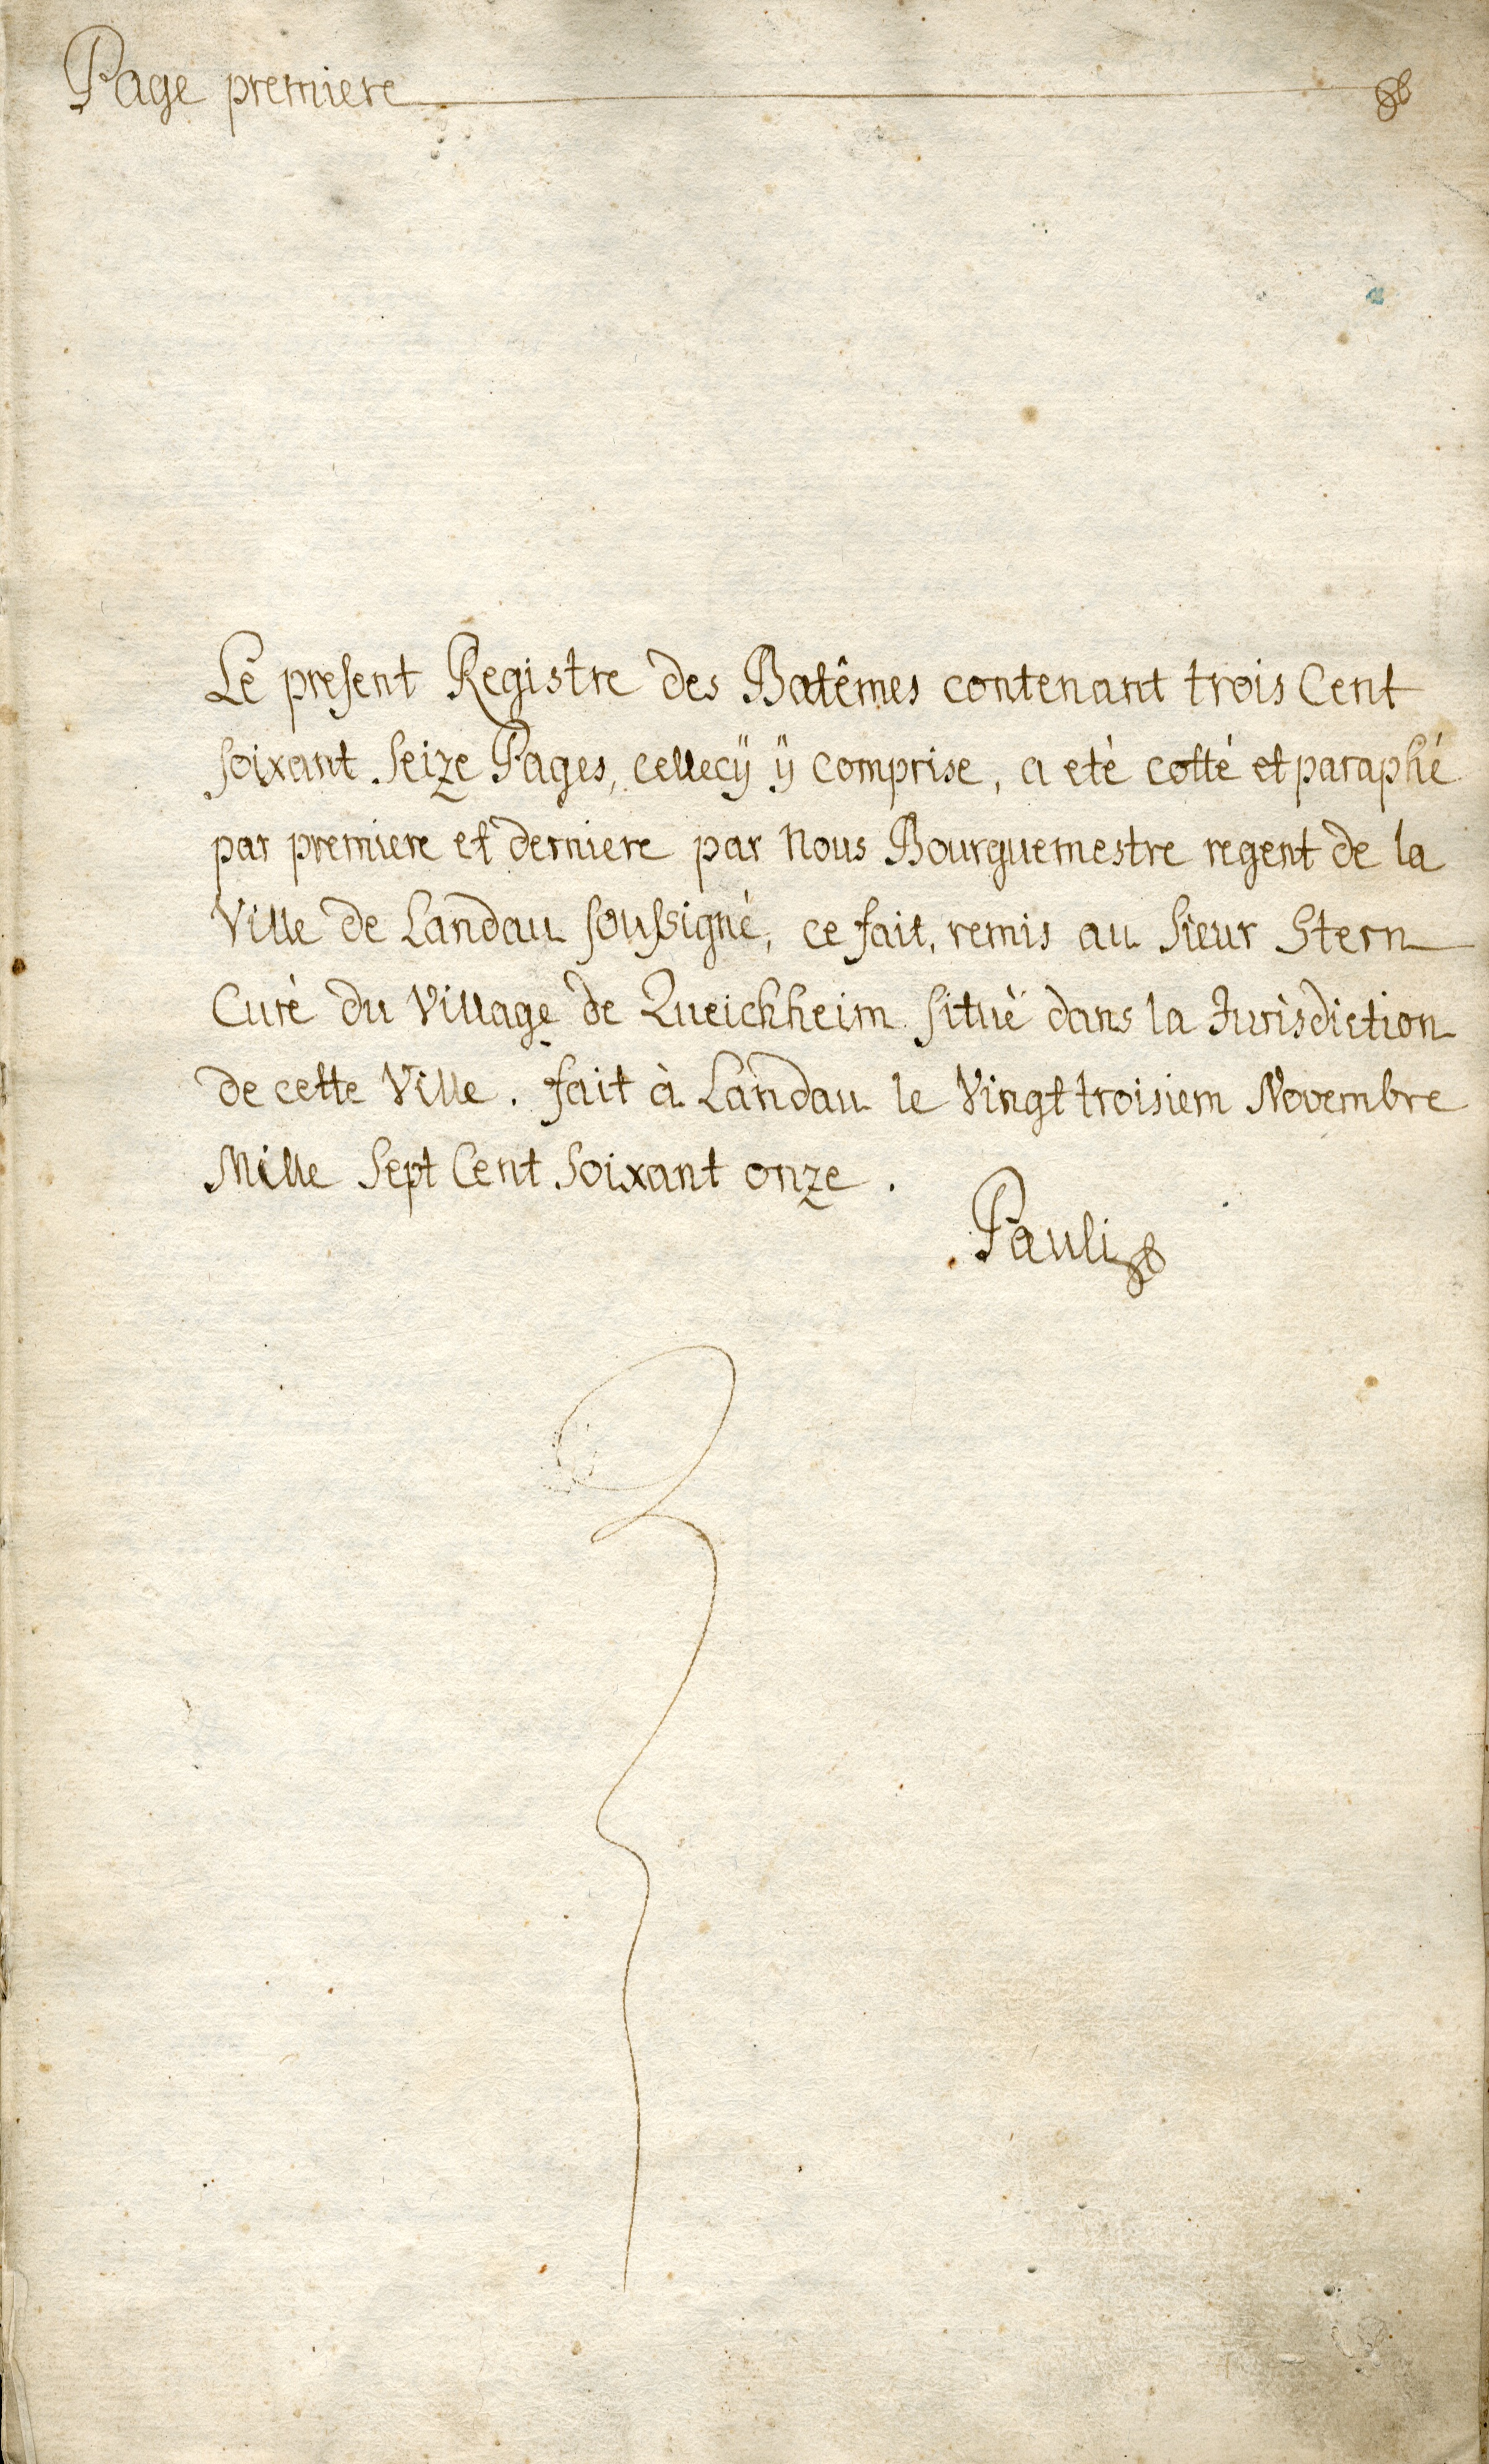 Page premiere
Le present Registre des Batêmes contenant trois Cent
soixant Seize Pages, cellecÿ ÿ comprise, a eté cotté et paraphé
par premiere et derniere par nous Bourguemestre regent de la
Ville de Landau soussigné, ce fait, remis au Sieur Stern
Curé du Village de Queichheim situé dans la Jurisdiction
de cette Ville. fait à Landau le Vingt troisiem Novembre
Mille Sept Cent Soixant onze.
Pauli